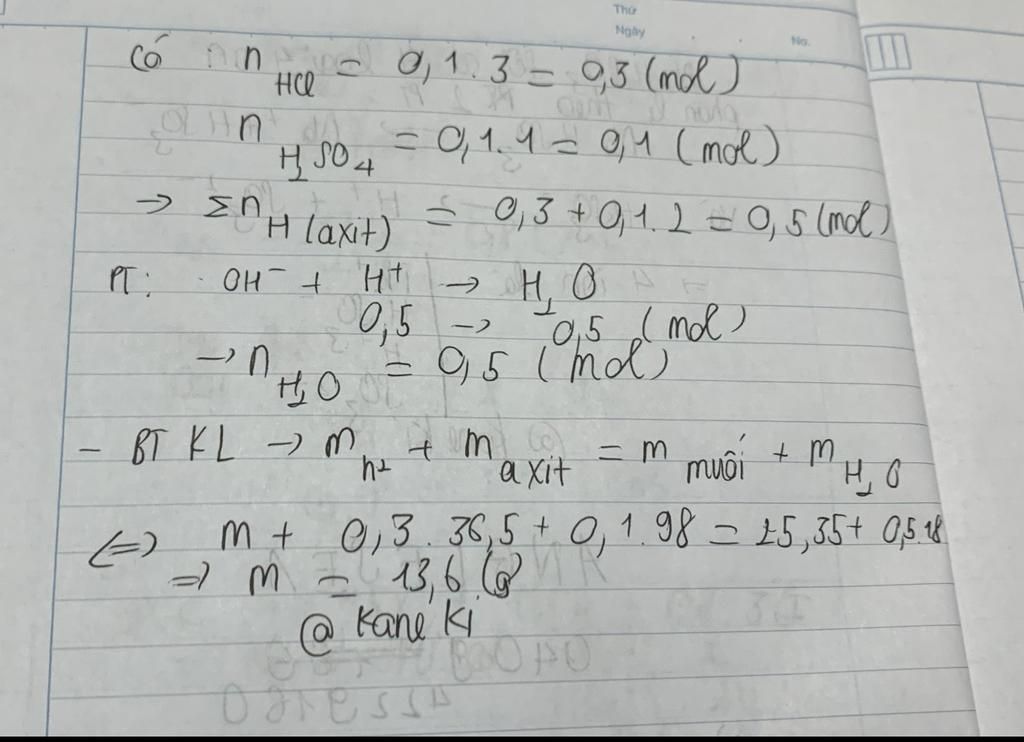 Thứ
Ngày
No.
Có : n HCl = 0,1 . 3 = 0,3 (mol)
n H₂SO₄ = 0,1 . 1 = 0,1 (mol)
→ Σn H (axit) = 0,3 + 0,1 . 2 = 0,5 (mol)
PT: OH⁻ + H⁺ → H₂O
0,5 → 0,5 (mol)
→ n H₂O = 0,5 (mol)
- BT KL → m h² + m axit = m muối + m H₂O
<=> m + 0,3 . 36,5 + 0,1 . 98 = 25,35 + 0,5.18
=> m = 13,6 (g)
@ Kane Ki